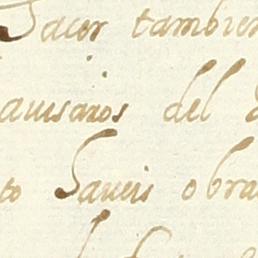 Sacer tambien
auisaros del
to Saueis obra